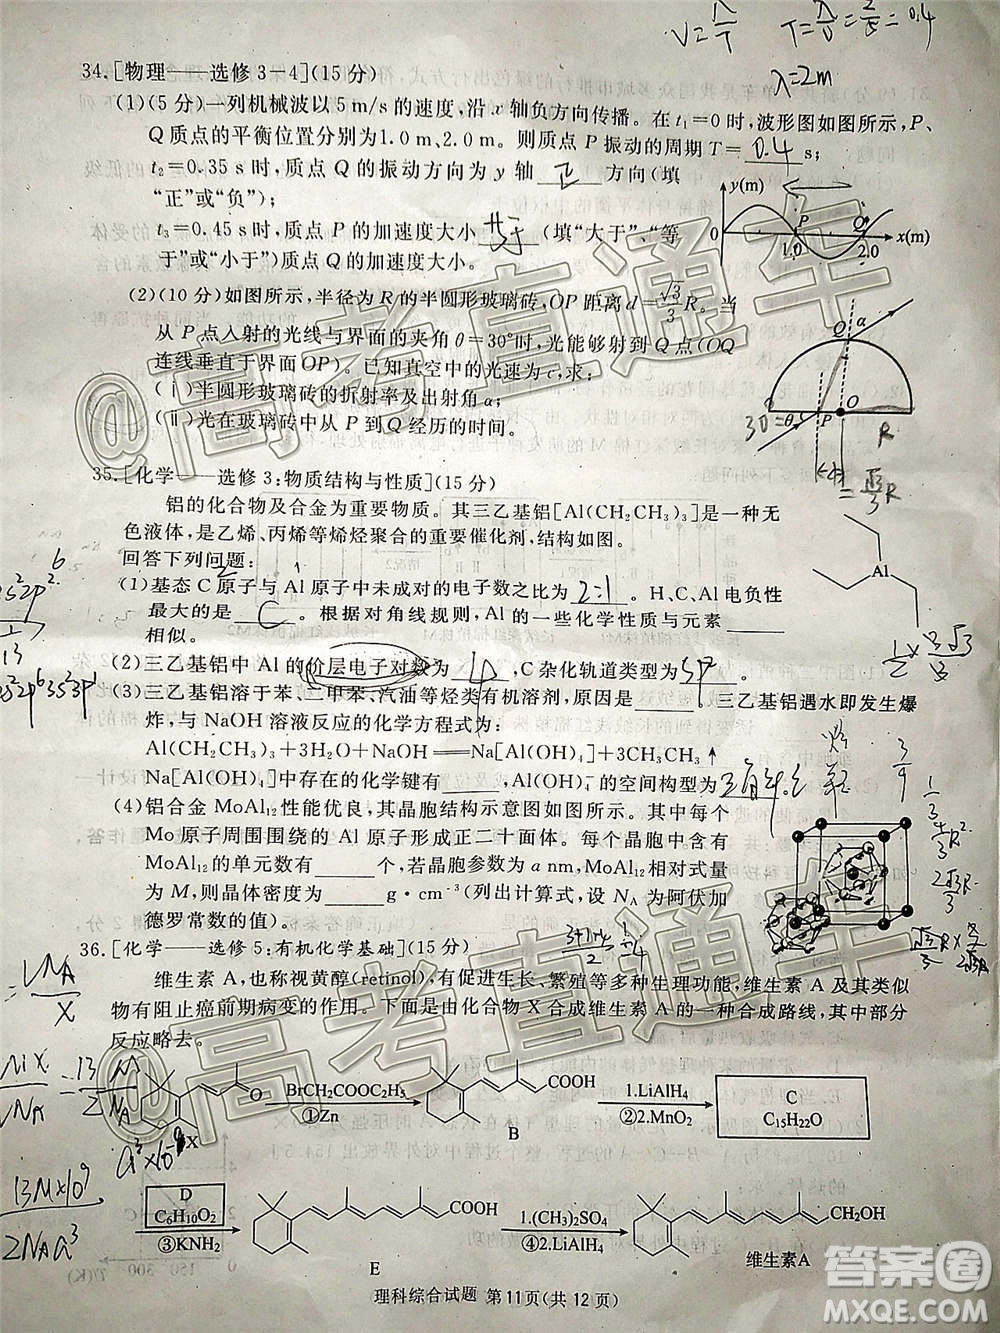 V=λ/T T=λ/v=2/5=0.4
λ=2m
34.[物理——选修3-4](15分)
(1)(5分)一列机械波以5 m/s的速度,沿x轴负方向传播。在t₁=0时,波形图如图所示,P、
Q质点的平衡位置分别为1.0 m、2.0 m。则质点P振动的周期T= 0.4 s;
t₂=0.35 s时,质点Q的振动方向为y轴 正 方向(填
“正”或“负”);
t₃=0.45 s时,质点P的加速度大小 (填“大于”、“等
于”或“小于”)质点Q的加速度大小。
y(m)
P
Q
0
1.0
2.0
x(m)
(2)(10分)如图所示,半径为R的半圆形玻璃砖,OP距离d=√3/3R。当
从P点入射的光线与界面的夹角θ=30°时,光能够射到Q点(OQ
连线垂直于界面OP)。已知真空中的光速为c,求:
(ⅰ)半圆形玻璃砖的折射率及出射角α;
(ⅱ)光在玻璃砖中从P到Q经历的时间。
Q
α
30°=θ
P
O
R
d
=√3/3R
35.[化学——选修3:物质结构与性质](15分)
铝的化合物及合金为重要物质。其三乙基铝[Al(CH₂CH₃)₃]是一种无
色液体,是乙烯、丙烯等烯烃聚合的重要催化剂,结构如图。
回答下列问题:
(1)基态C原子与Al原子中未成对的电子数之比为 2:1 。H、C、Al电负性
最大的是 C 。根据对角线规则,Al的一些化学性质与元素
相似。
Al
(2)三乙基铝中Al的价层电子对数为 ,C杂化轨道类型为 。
(3)三乙基铝溶于苯、二甲苯、汽油等烃类有机溶剂,原因是 。三乙基铝遇水即发生爆
炸,与NaOH溶液反应的化学方程式为:
Al(CH₂CH₃)₃+3H₂O+NaOH══Na[Al(OH)₄]+3CH₃CH₃↑
Na[Al(OH)₄]中存在的化学键有 ,Al(OH)₄⁻的空间构型为
(4)铝合金MoAl₁₂性能优良,其晶胞结构示意图如图所示。其中每个
Mo原子周围围绕的Al原子形成正二十面体。每个晶胞中含有
MoAl₁₂的单元数有 个;若晶胞参数为a nm,MoAl₁₂相对式量
为M,则晶体密度为 g·cm⁻³(列出计算式,设N_A为阿伏加
德罗常数的值)。
36.[化学——选修5:有机化学基础](15分)
维生素A,也称视黄醇(retinol),有促进生长、繁殖等多种生理功能,维生素A及其类似
物有阻止癌前期病变的作用。下面是由化合物X合成维生素A的一种合成路线,其中部分
反应略去。
O
X
BrCH₂COOC₂H₅
①Zn
COOH
B
1.LiAlH₄
②2.MnO₂
C
C₁₅H₂₂O
D
C₆H₁₀O₂
③KNH₂
COOH
E
1.(CH₃)₂SO₄
④2.LiAlH₄
CH₂OH
维生素A
理科综合试题 第11页(共12页)
@高考直通车
@高考直通车
答案圈
MXQE.COM